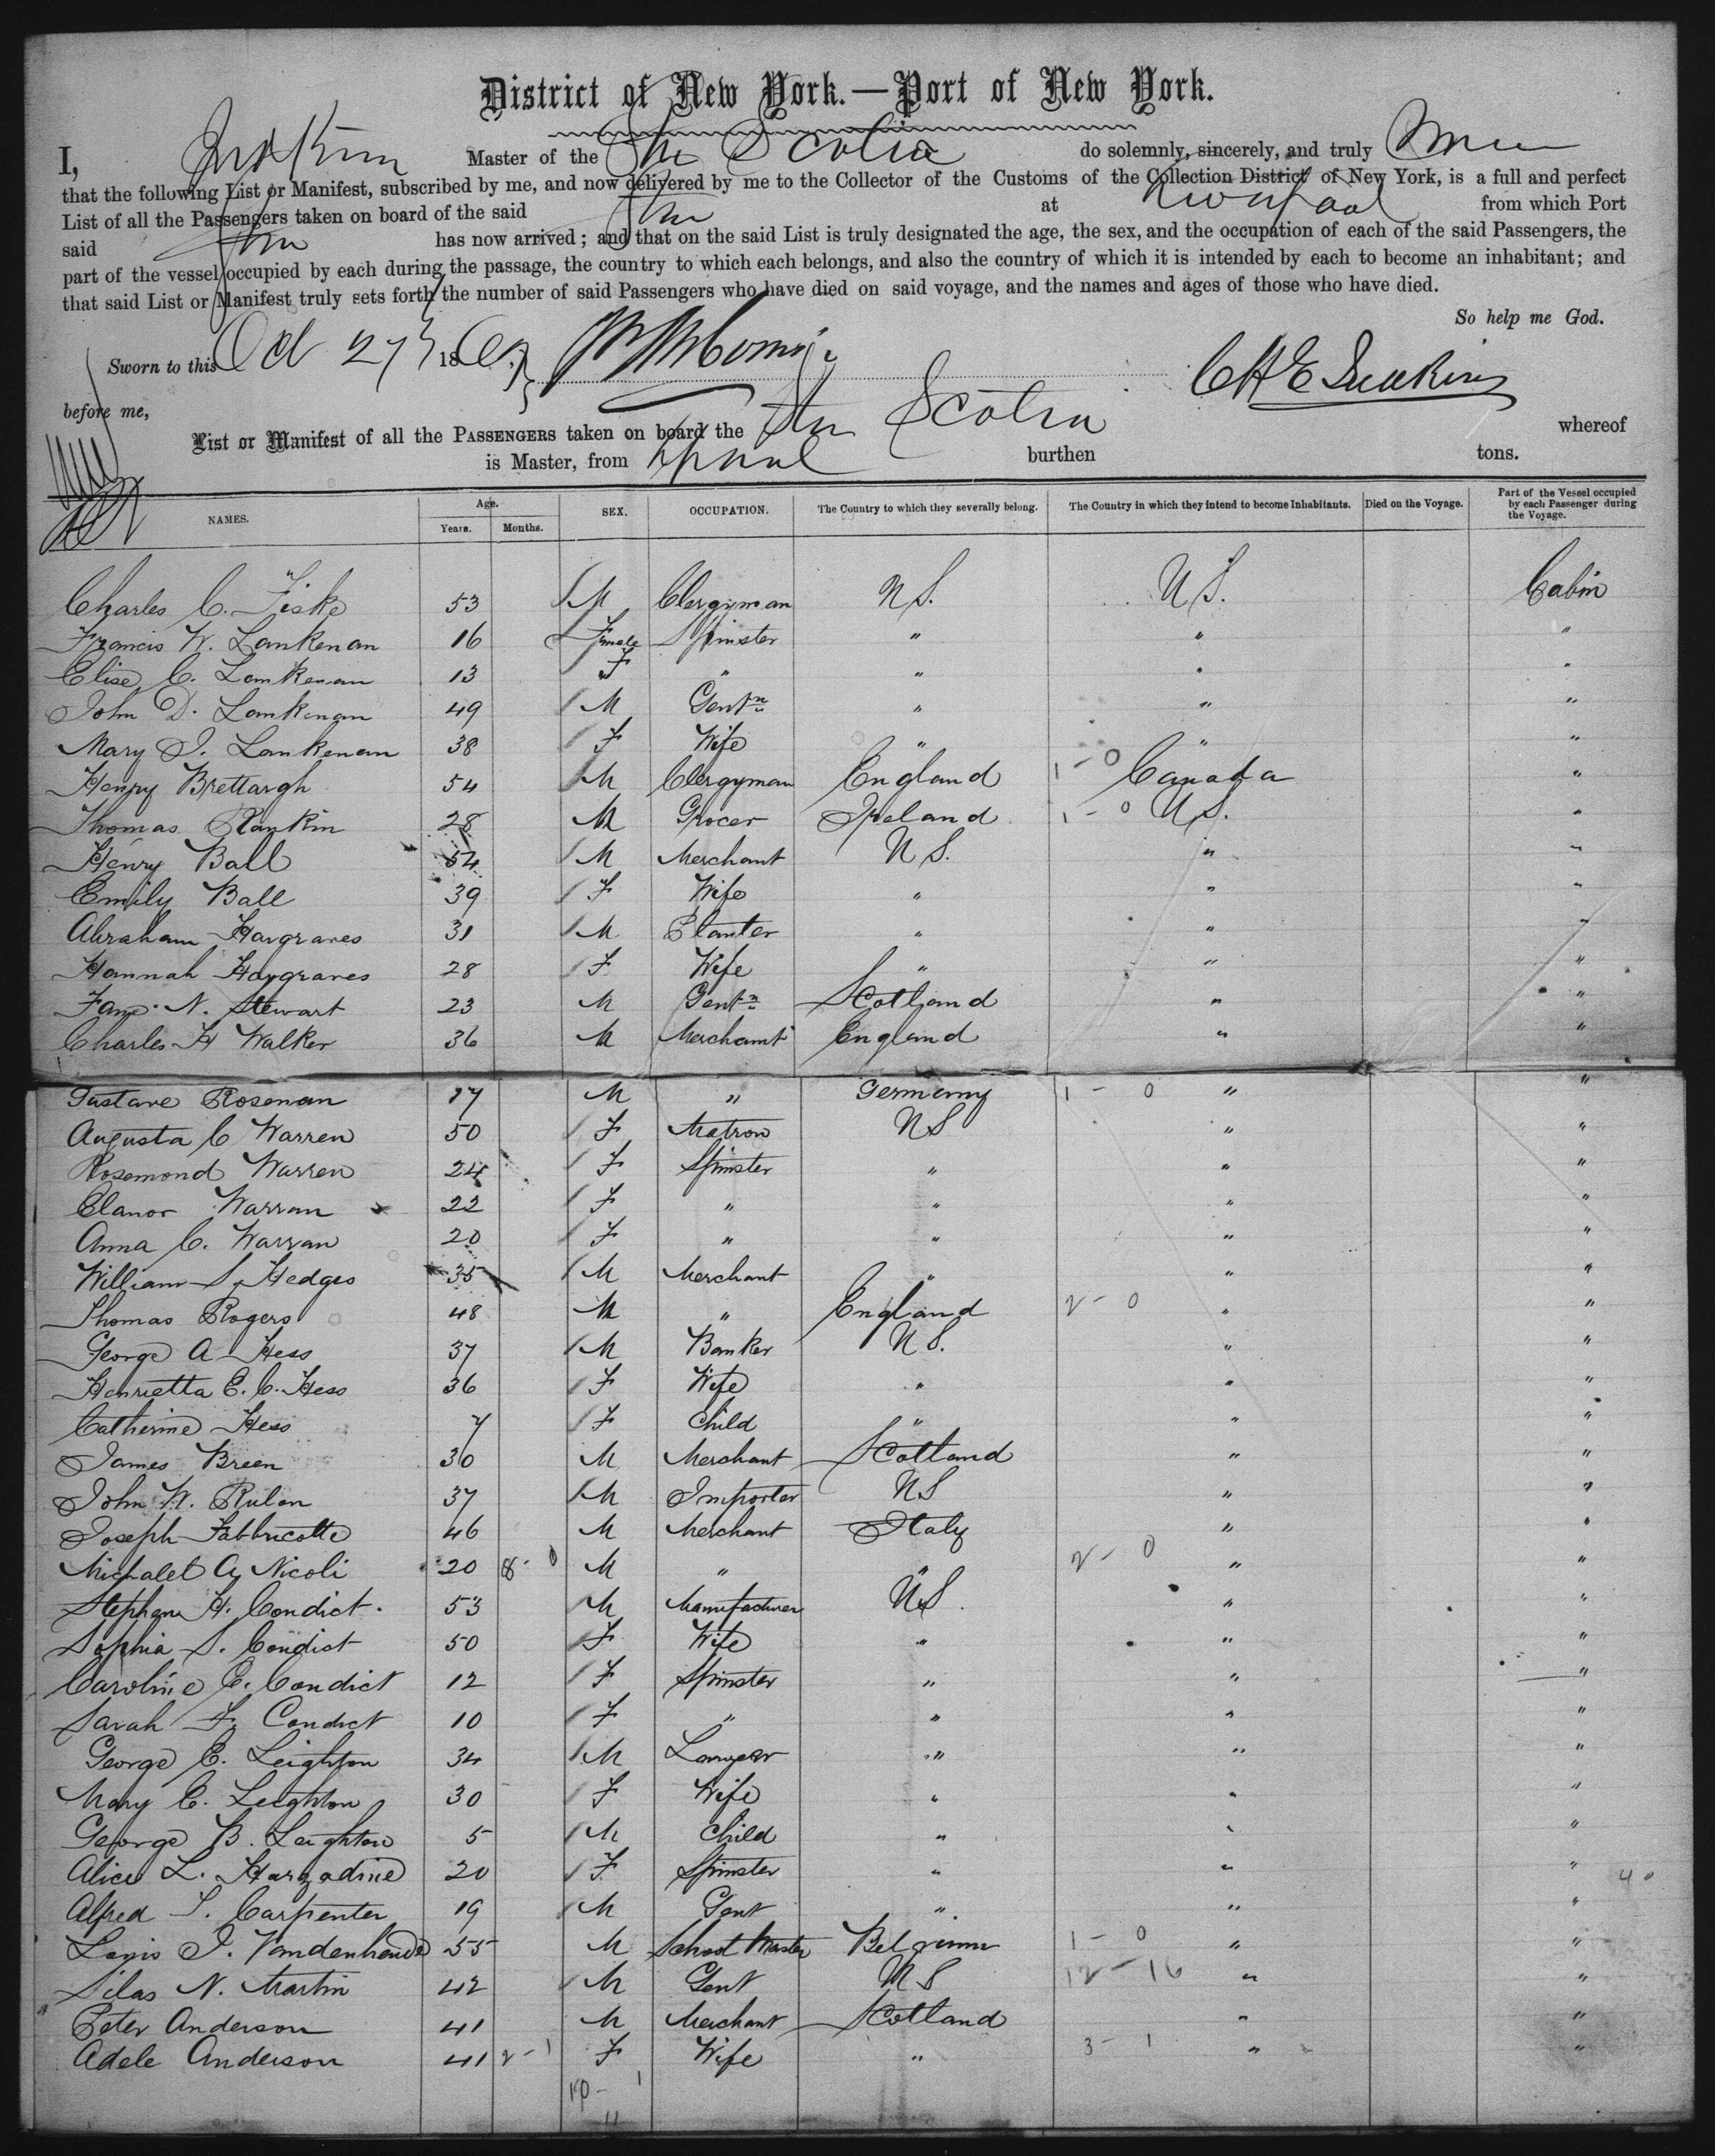 District of New York.—Port of New York.
I, Master of the Str Scotia do solemnly, sincerely, and truly
that the following List or Manifest, subscribed by me, and now delivered by me to the Collector of the Customs of the Collection District of New York, is a full and perfect
List of all the Passengers taken on board of the said Str at Liverpool from which Port
said Str has now arrived; and that on the said List is truly designated the age, the sex, and the occupation of each of the said Passengers, the
part of the vessel occupied by each during the passage, the country to which each belongs, and also the country of which it is intended by each to become an inhabitant; and
that said List or Manifest truly sets forth the number of said Passengers who have died on said voyage, and the names and ages of those who have died.
So help me God.
Sworn to this Oct 27 18
before me,
List or Manifest of all the PASSENGERS taken on board the Str Scotia whereof
is Master, from burthen tons.
NAMES. Age. Years. Months. SEX. OCCUPATION. The Country to which they severally belong. The Country in which they intend to become Inhabitants. Died on the Voyage. Part of the Vessel occupied by each Passenger during the Voyage.
Charles C. Fiske 53 M Clergyman U S. U S. Cabin
Francis W. Lankenan 16 Female Spinster " " "
Elise C. Lankenan 13 F " " " "
John D. Lankenan 49 M Gentn " " "
Mary J. Lankenan 38 F Wife " " "
Henry Brettargh 54 M Clergyman England 1 - 0 Canada "
Thomas Rankin 28 M Grocer Ireland 1 - 0 U S. "
Henry Ball 54 M Merchant U S. " "
Emily Ball 39 F Wife " " "
Abraham Hargraves 31 M Planter " " "
Hannah Hargraves 28 F Wife " " "
N. Stewart 23 M Gentn Scotland " "
Charles H Walker 36 M Merchant England " "
Gustave Roseman 17 M " Germany 1 - 0 " "
Augusta C Warren 50 F Matron U S " "
Rosemond Warren 24 F Spinster " " "
Elanor Warran 22 F " " " "
Anna C. Warran 20 F " " " "
William S. Hedges 35 M Merchant " " "
Thomas Rogers 48 M " England 2 - 0 " "
George A Hess 37 M Banker U S. " "
Henrietta E. C. Hess 36 F Wife " " "
Catherine Hess 7 F Child " " "
James Breen 30 M Merchant Scotland " "
John W. Rulon 37 M Importer U S " "
Joseph Fabbricotte 46 M Merchant Italy " "
Michalet A Nicoli 20 8 - 0 M " " 2 - 0 " "
Stephen H. Condict. 53 M Manufacturer U S. " "
Sophia S. Condict 50 F Wife " " "
Caroline E. Condict 12 F Spinster " " "
Sarah F. Condict 10 F " " " "
George E. Leighton 34 M Lawyer " " "
Mary E. Leighton 30 F Wife " " "
George B. Leighton 5 M Child " " "
Alice L. Hargadine 20 F Spinster " " " 40
Alfred S. Carpenter 19 M Gent " " "
Louis J. Vandenhende 55 M School Master Belgium 1 - 0 " "
Silas N. Martin 42 M Gent U S 12 - 16 " "
Peter Anderson 41 M Merchant Scotland " "
Adele Anderson 41 2 - 1 F Wife " 3 - 1 " "
10 - 1
11